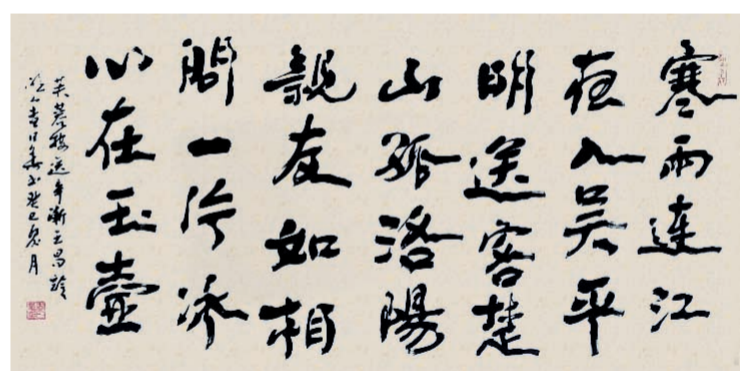 寒雨連江
夜入吴平
明送客楚
山孤洛陽
親友如相
問一片冰
心在玉壺
芙蓉楼送辛漸王昌龄
癸巳
月